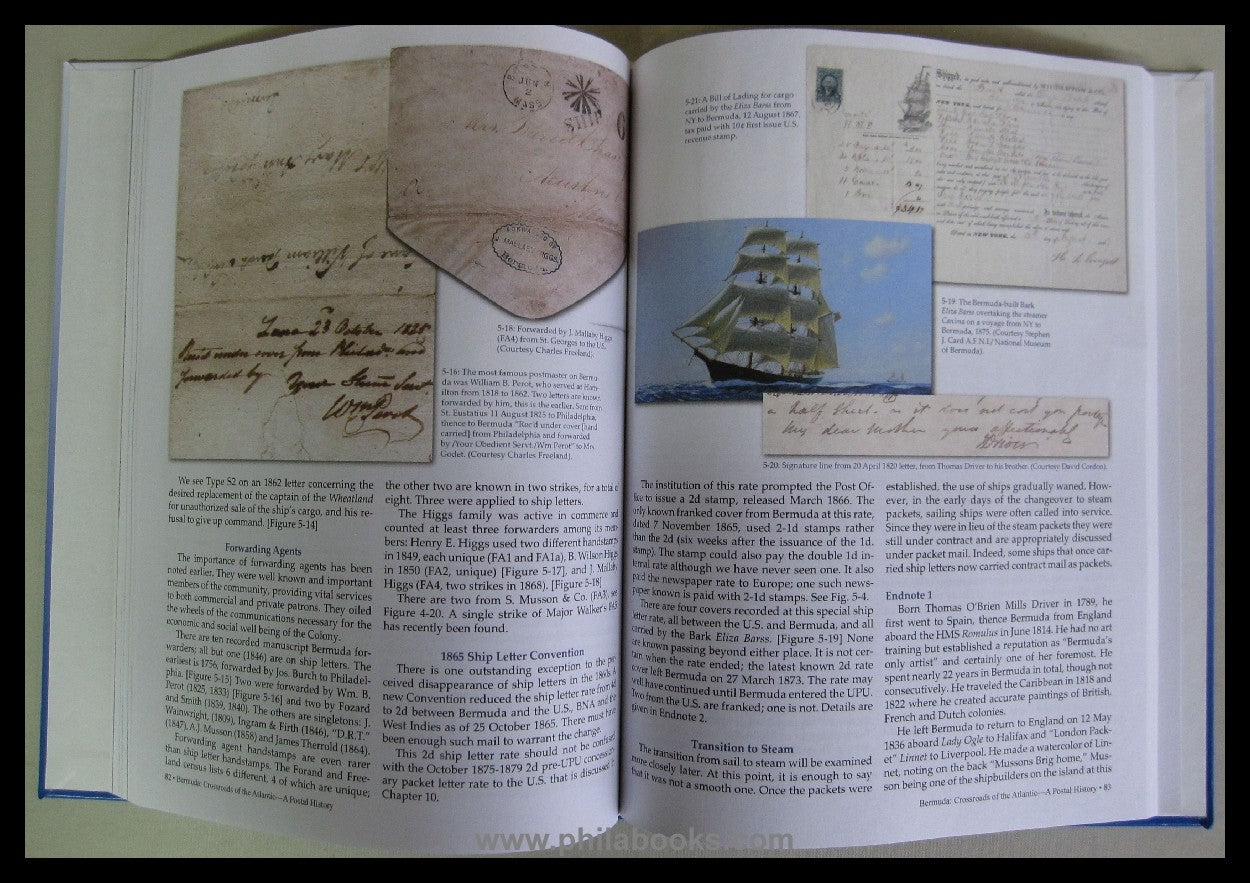 JUN
2
MASS
SHIP
FORWARDED BY
MALLABY HIGGS
Bermuda
23 October 1825
forwarded by
Wm Perot
5-18: Forwarded by J. Mallaby Higgs
(FA4) from St. Georges to the U.S.
(Courtesy Charles Freeland).
5-16: The most famous postmaster on Bermu-
da was William B. Perot, who served at Ham-
ilton from 1818 to 1862. Two letters are known
forwarded by him, this is the earlier. Sent from
St. Eustatius 11 August 1825 to Philadelphia,
thence to Bermuda "Rec'd under cover [hand
carried] from Philadelphia and forwarded
by /Your Obedient Servt./Wm Perot" to Mrs.
Godet. (Courtesy Charles Freeland).
We see Type S2 on an 1862 letter concerning the
desired replacement of the captain of the Wheatland
for unauthorized sale of the ship's cargo, and his re-
fusal to give up command. [Figure 5-14]
Forwarding Agents
The importance of forwarding agents has been
noted earlier. They were well known and important
members of the community, providing vital services
to both commercial and private patrons. They oiled
the wheels of the communications necessary for the
economic and social well being of the Colony.
There are ten recorded manuscript Bermuda for-
warders; all but one (1846) are on ship letters. The
earliest is 1756, forwarded by Jos. Burch to Philadel-
phia. [Figure 5-15] Two were forwarded by Wm. B.
Perot (1825, 1833) [Figure 5-16] and two by Fozard
and Smith (1839, 1840). The others are singletons: J.
Wainwright, (1809), Ingram & Firth (1846), "D.R.T."
(1847), A.J. Musson (1858) and James Therrold (1864).
Forwarding agent handstamps are even rarer
than ship letter handstamps. The Forand and Free-
land census lists 6 different, 4 of which are unique;
82 • Bermuda: Crossroads of the Atlantic—A Postal History
the other two are known in two strikes, for a total of
eight. Three were applied to ship letters.
The Higgs family was active in commerce and
counted at least three forwarders among its mem-
bers: Henry E. Higgs used two different handstamps
in 1849, each unique (FA1 and FA1a), B. Wilson Higgs
in 1850 (FA2, unique) [Figure 5-17], and J. Mallaby
Higgs (FA4, two strikes in 1868). [Figure 5-18]
There are two from S. Musson & Co. (FA3), see
Figure 4-20. A single strike of Major Walker's
has recently been found.
1865 Ship Letter Convention
There is one outstanding exception to the per-
ceived disappearance of ship letters in the 1860s. A
new Convention reduced the ship letter rate from 4d
to 2d between Bermuda and the U.S., BNA and the
West Indies as of 25 October 1865. There must have
been enough such mail to warrant the change.
This 2d ship letter rate should not be confused
with the October 1875-1879 2d pre-UPU concession-
ary packet letter rate to the U.S. that is discussed in
Chapter 10.
5-21: A Bill of Lading for cargo
carried by the Eliza Barss from
NY to Bermuda, 12 August 1867,
tax paid with 10¢ first issue U.S.
revenue stamp.
Shipped,
NEW YORK,
Dated in NEW YORK,
5-19: The Bermuda-built Bark
Eliza Barss overtaking the steamer
Canima on a voyage from NY to
Bermuda, 1875. (Courtesy Stephen
J. Card A.F.N.I./ National Museum
of Bermuda).
a half sheet. as it does not cost you
My dear Mother yours affectionately
TDriver
5-20: Signature line from 20 April 1820 letter, from Thomas Driver to his brother. (Courtesy David Cordon).
The institution of this rate prompted the Post Of-
fice to issue a 2d stamp, released March 1866. The
only known franked cover from Bermuda at this rate,
dated 7 November 1865, used 2-1d stamps rather
than the 2d (six weeks after the issuance of the 1d.
stamp). The stamp could also pay the double 1d in-
ternal rate although we have never seen one. It also
paid the newspaper rate to Europe; one such news-
paper known is paid with 2-1d stamps. See Fig. 5-4.
There are four covers recorded at this special ship
letter rate, all between the U.S. and Bermuda, and all
carried by the Bark Eliza Barss. [Figure 5-19] None
are known passing beyond either place. It is not cer-
tain when the rate ended; the latest known 2d rate
cover left Bermuda on 27 March 1873. The rate may
well have continued until Bermuda entered the UPU.
Two from the U.S. are franked; one is not. Details are
given in Endnote 2.
Transition to Steam
The transition from sail to steam will be examined
more closely later. At this point, it is enough to say
that it was not a smooth one. Once the packets were
established, the use of ships gradually waned. How-
ever, in the early days of the changeover to steam
packets, sailing ships were often called into service.
Since they were in lieu of the steam packets they were
still under contract and are appropriately discussed
under packet mail. Indeed, some ships that once car-
ried ship letters now carried contract mail as packets.
Endnote 1
Born Thomas O'Brien Mills Driver in 1789, he
first went to Spain, thence Bermuda from England
aboard the HMS Romulus in June 1814. He had no art
training but established a reputation as "Bermuda's
only artist" and certainly one of her foremost. He
spent nearly 22 years in Bermuda in total, though not
consecutively. He traveled the Caribbean in 1818 and
1822 where he created accurate paintings of British,
French and Dutch colonies.
He left Bermuda to return to England on 12 May
1836 aboard Lady Ogle to Halifax and "London Pack-
et" Linnet to Liverpool. He made a watercolor of Lin-
net, noting on the back "Mussons Brig home," Mus-
son being one of the shipbuilders on the island at this
Bermuda: Crossroads of the Atlantic—A Postal History • 83
www.philabooks.com